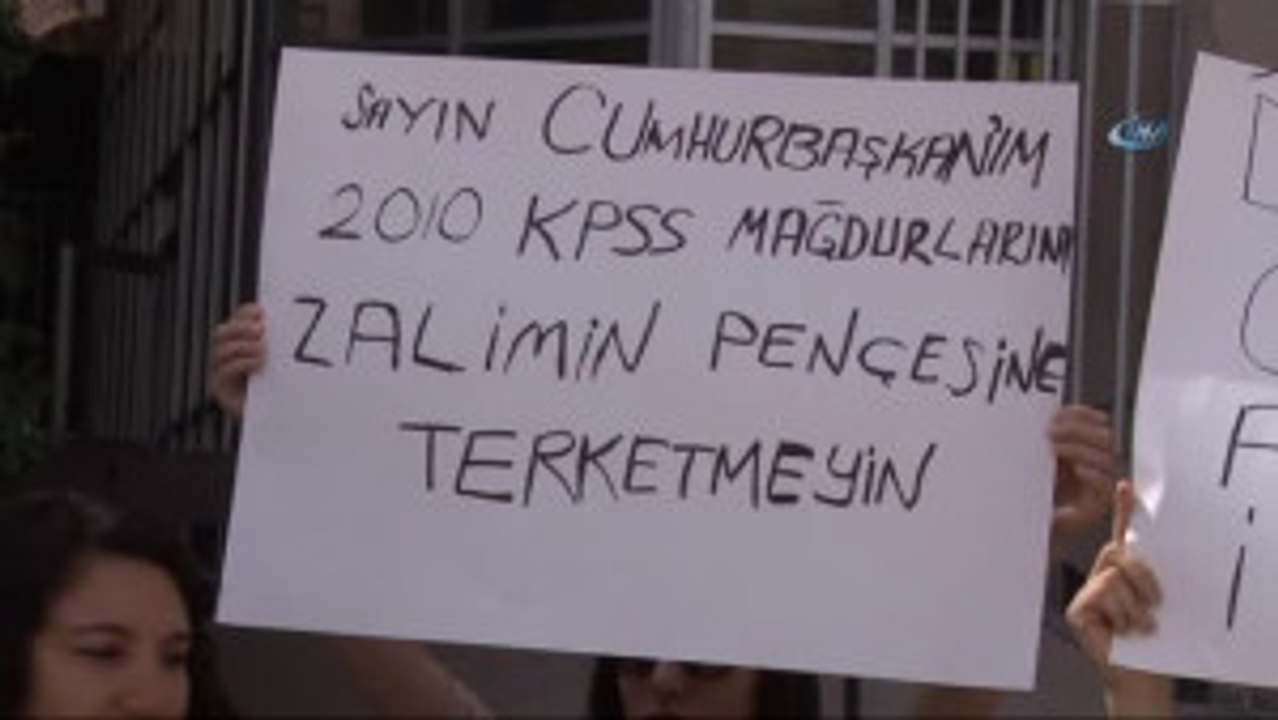 SAYIN CUMHURBAŞKAN'IM
2010 KPSS MAĞDURLARINI
ZALİMİN PENÇESİNE
TERKETMEYİN
İHA